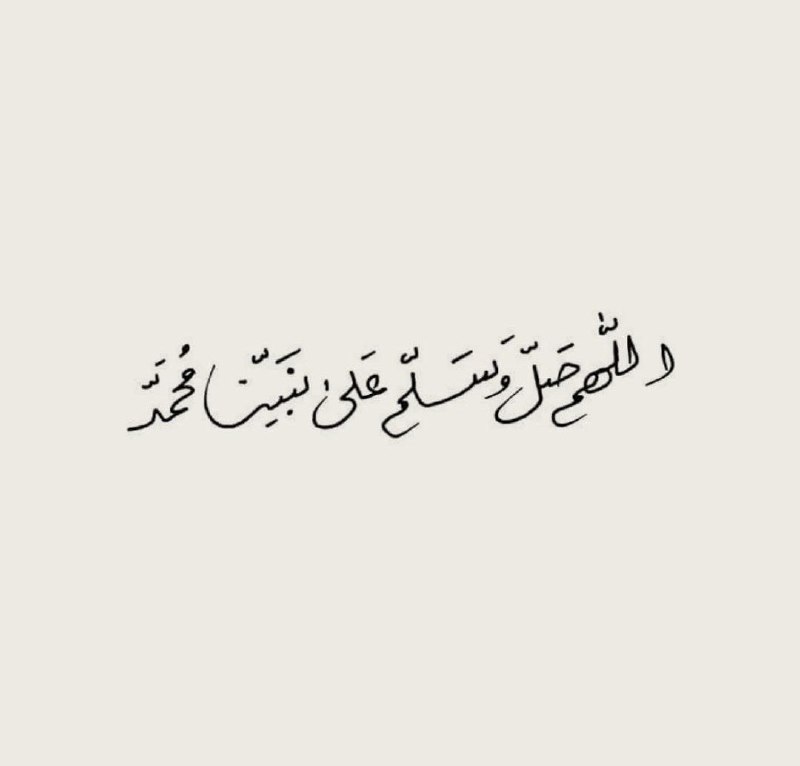 اللَّهم صَلِّ وَسَلِّم عَلىٰ نَبَيِّنا مُحمَدَّ